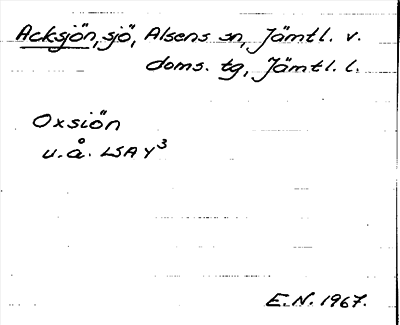 Acksjön, sjö, Alsens sn, Jämtl. v.
doms. tg, Jämtl. l.
Oxsiön
u.å. LSA Y3
E.N. 1967.